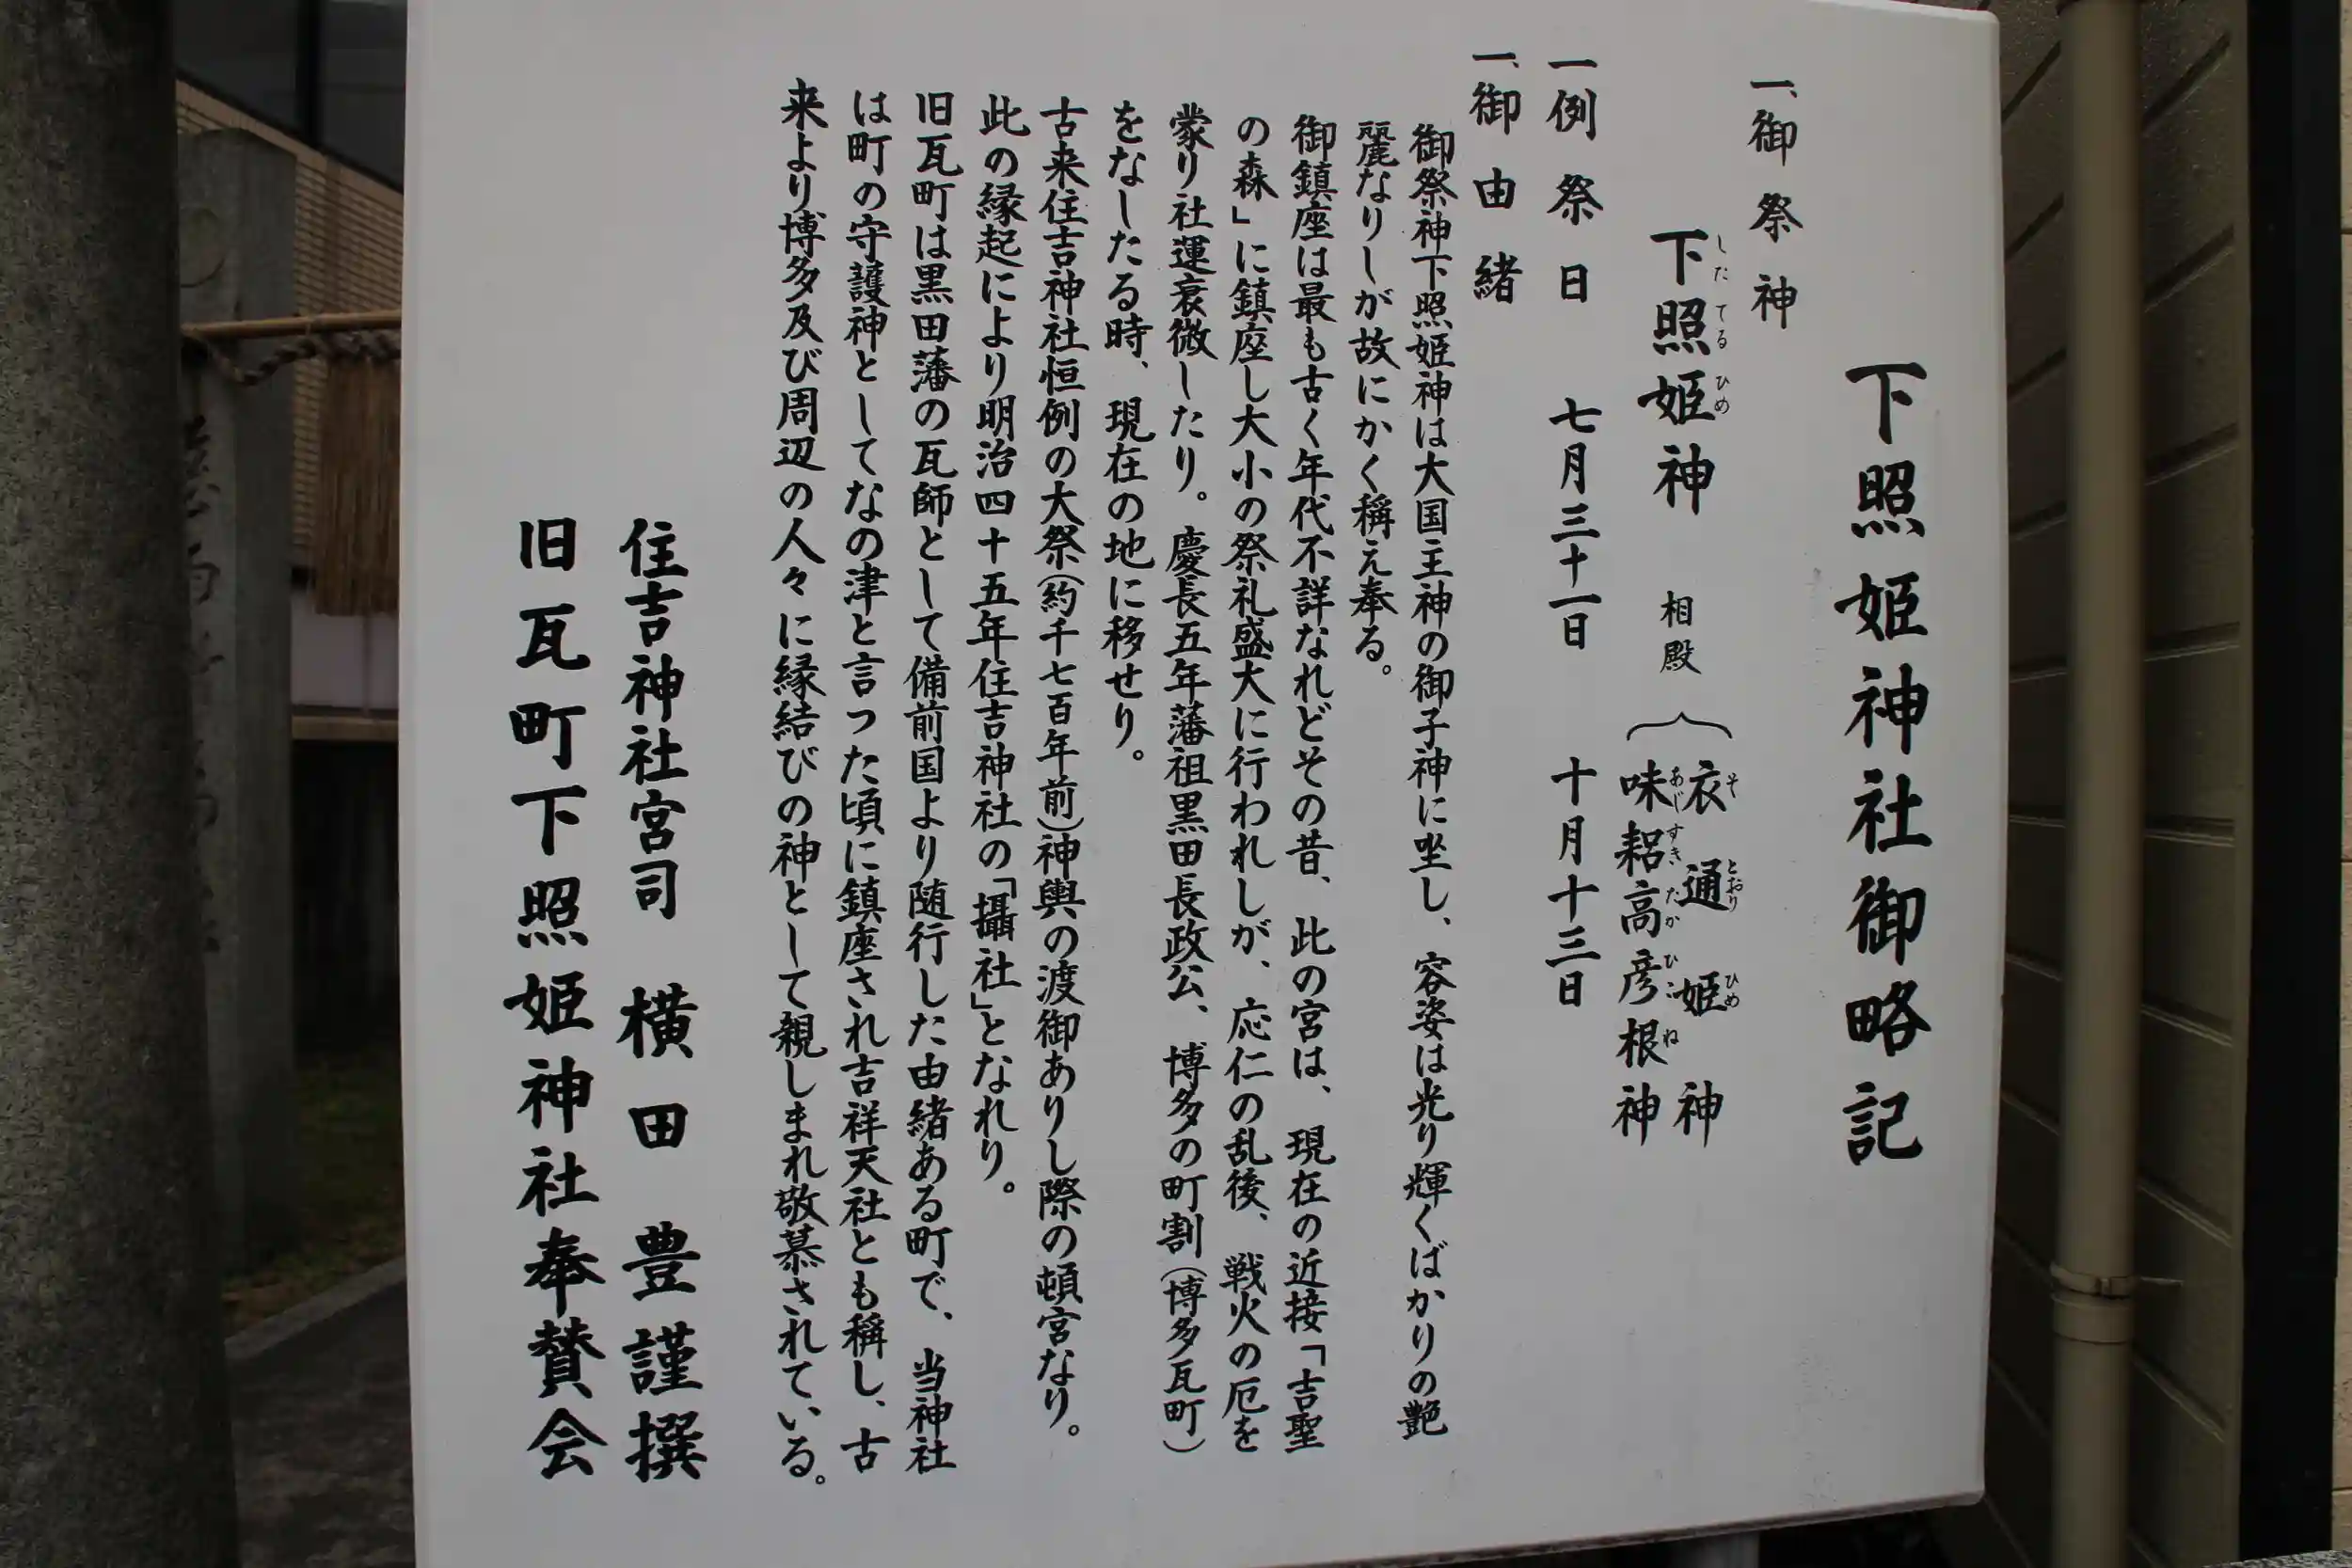 下照姫神社御略記
一、御祭神
下照姫神 相殿
したてるひめ
衣通姫神
そとおりひめ
味耜高彦根神
あじすきたかひこね
一例祭日 七月三十一日 十月十三日
一、御由緒
御祭神下照姫神は大国主神の御子神に坐し、容姿は光り輝くばかりの艶
麗なりしが故にかく稱え奉る。
御鎮座は最も古く年代不詳なれどその昔、此の宮は、現在の近接「吉聖
の森」に鎮座し大小の祭礼盛大に行われしが、応仁の乱後、戦火の厄を
蒙り社運衰微したり。慶長五年藩祖黒田長政公、博多の町割(博多瓦町)
をなしたる時、現在の地に移せり。
古来住吉神社恒例の大祭(約千七百年前)神輿の渡御ありし際の頓宮なり。
此の縁起により明治四十五年住吉神社の「攝社」となれり。
旧瓦町は黒田藩の瓦師として備前国より随行した由緒ある町で、当神社
は町の守護神としてなの津と言った頃に鎮座され吉祥天社とも稱し、古
来より博多及び周辺の人々に縁結びの神として親しまれ敬慕されている。
住吉神社宮司 横田豊謹撰
旧瓦町下照姫神社奉賛会